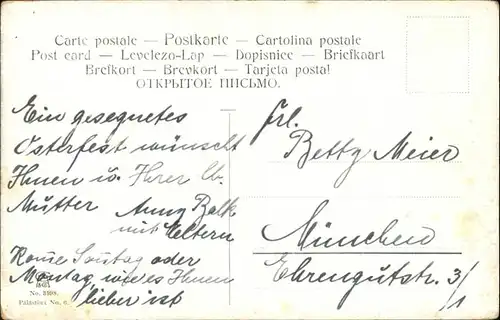 Carte postale — Postkarte — Cartolina postale
Post card — Levelezo-Lap — Dopisnice — Briefkaart
Brefkort — Brevkort — Tarjeta postal
ОТКРЫТОЕ ПИСЬМО.
Ein gesegnetes
Osterfest wünscht
Ihnen u. Ihrer lb.
Mutter Anny Balk
mit Eltern
Kome Sontag oder
Montag, wie es Ihnen
lieber ist
Frl.
Betty Meier
München
Ehrengutstr. 3/1
No. 3198.
Palästina No. 6.